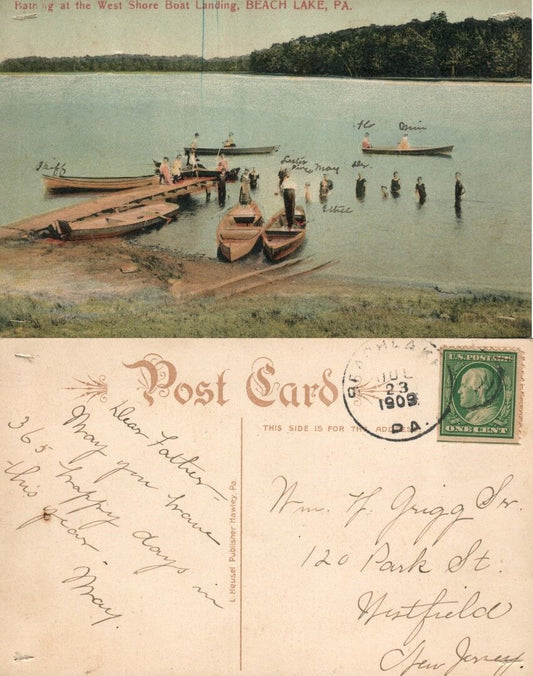 Bathing at the West Shore Boat Landing, BEACH LAKE, PA.
Flo Mim
Skiff Leslie May
Ethel
Post Card
THIS SIDE IS FOR THE ADDRESS
BEACHLAKE
JUL
23
1909
PA.
U.S. POSTAGE
ONE CENT
Dear Father—
May you have
365 happy days in
this year.
May.
L. Heusel Publisher Hawley, Pa.
Wm. H. Grigg Sr.
120 Park St.
Westfield
New Jersey.